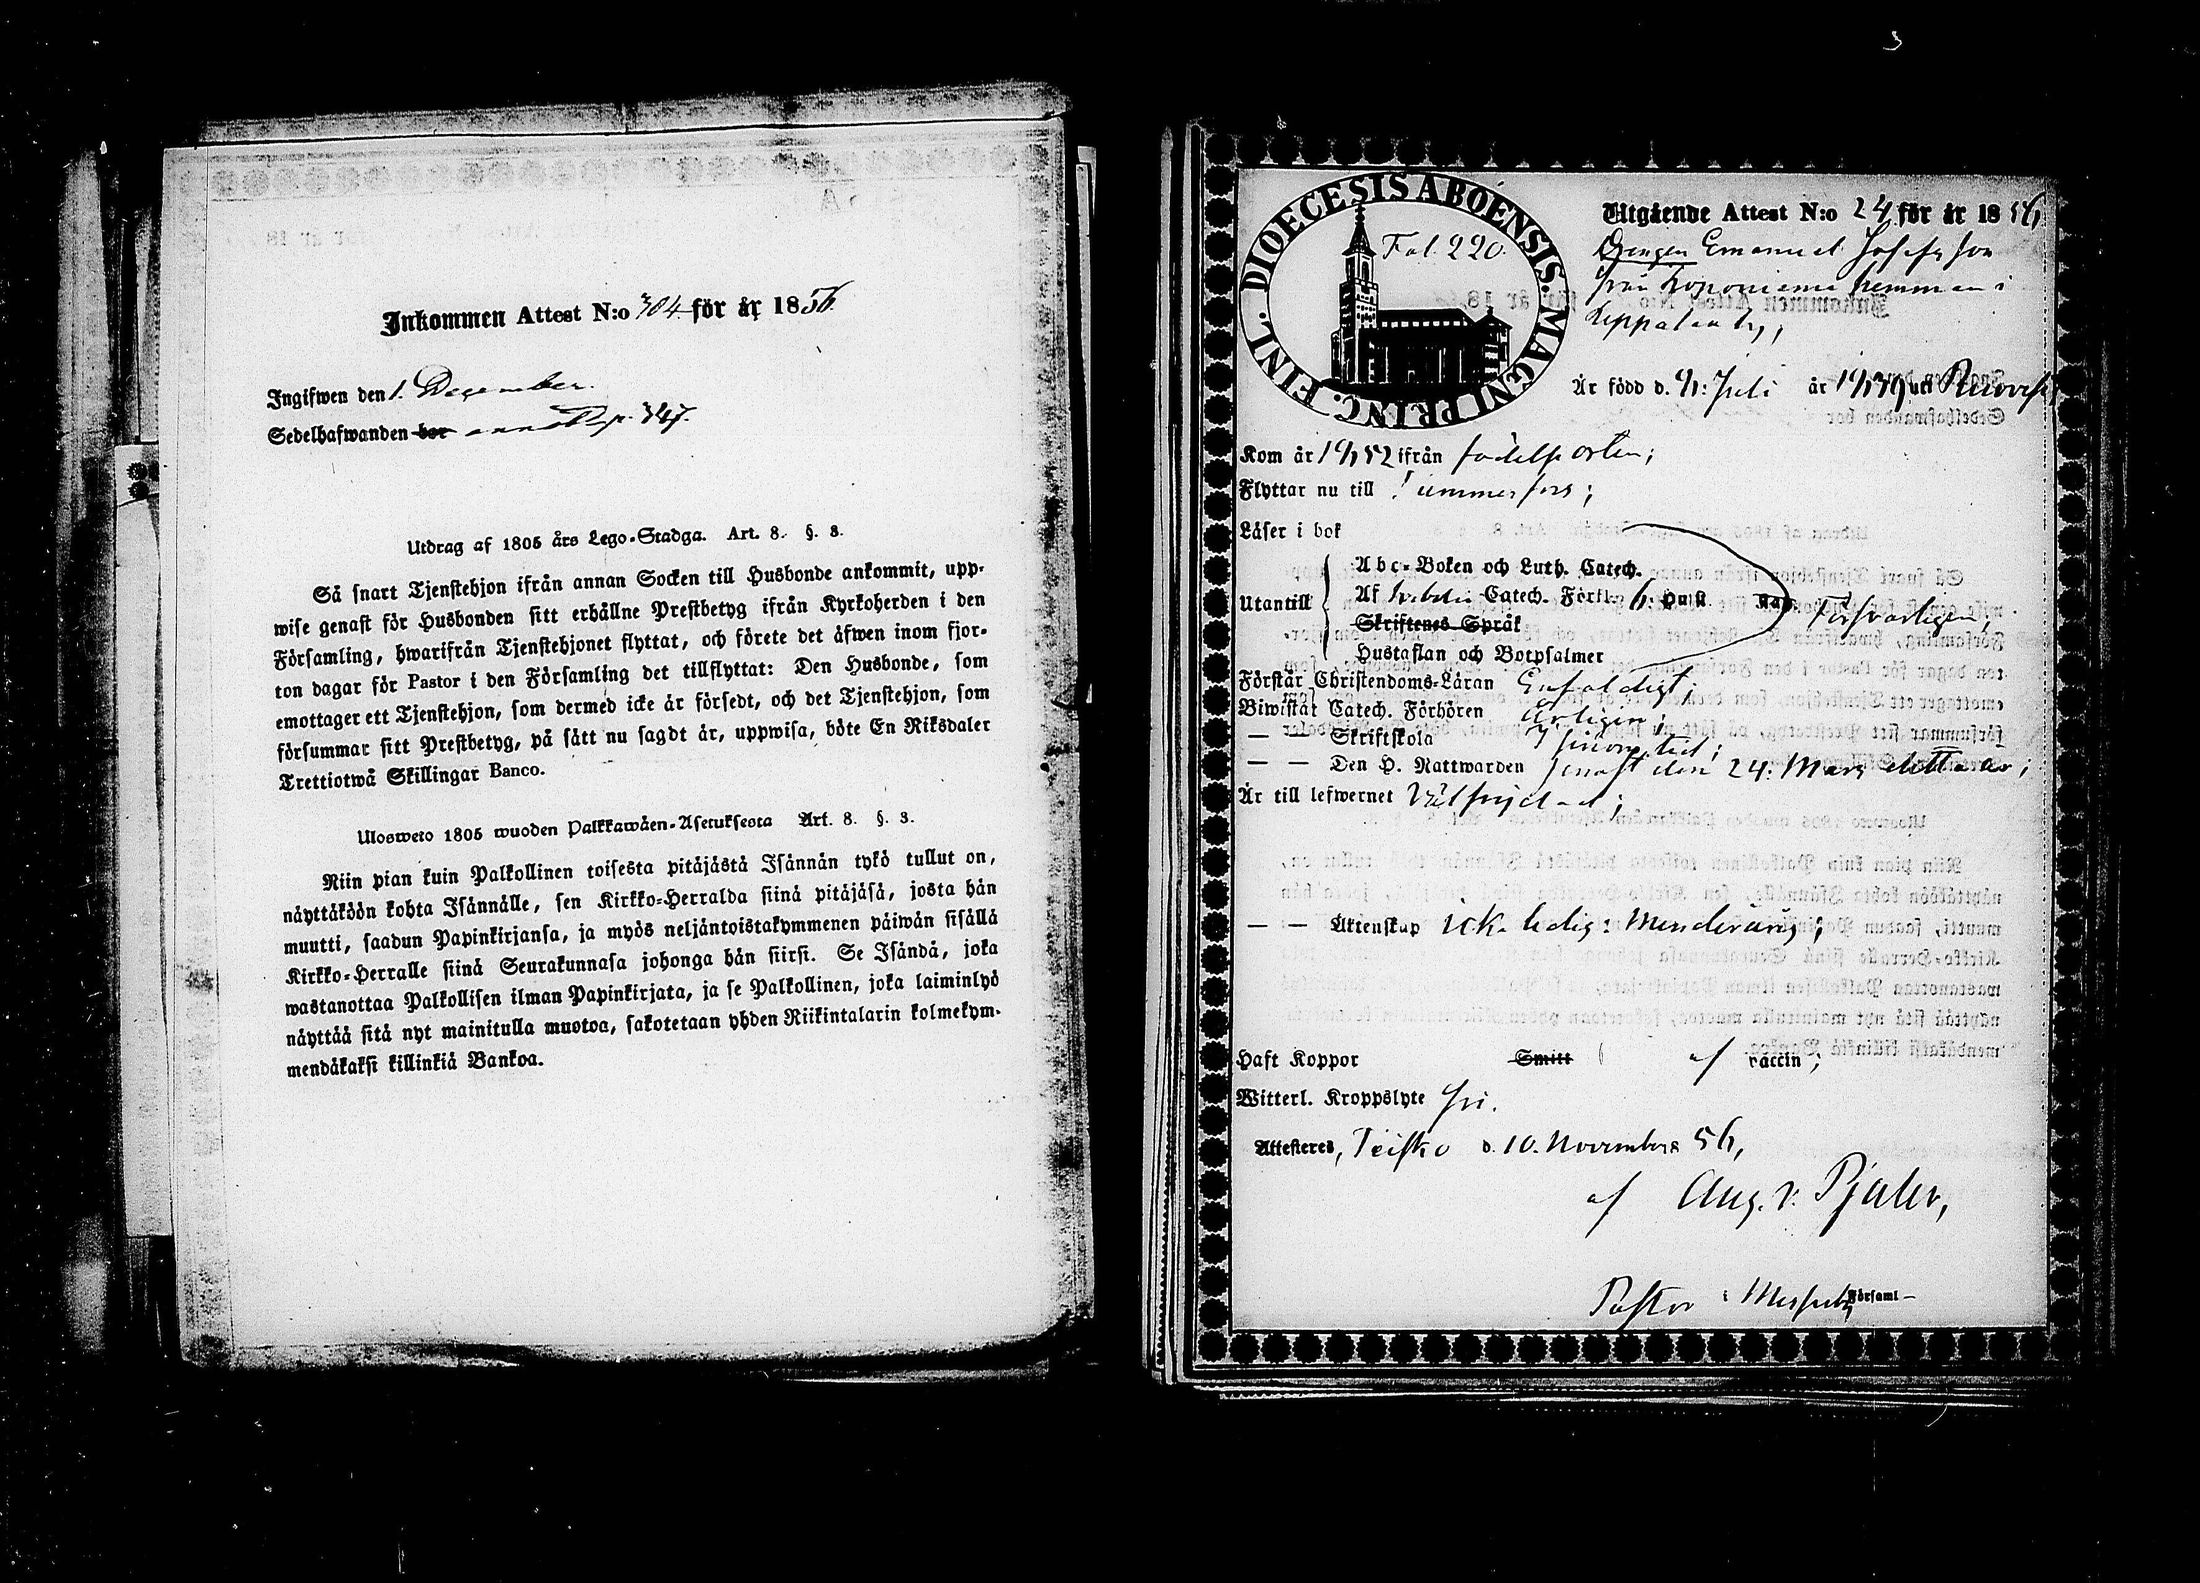 Inkommen Attest N:o 304 för år 1856.
Ingifwen den 1. December.
Sedelhafwanden bor annot. p. 347.
Utdrag af 1805 års Lego-Stadga. Art. 8. §. 3.
Så snart Tjenstehjon ifrån annan Socken till Husbonde ankommit, upp-
wise genast för Husbonden sitt erhållne Prestbetyg ifrån Kyrkoherden i den
Församling, hwarifrån Tjenstehjonet flyttat, och förete det äfwen inom fjor-
ton dagar för Pastor i den Församling det tillflyttat: Den Husbonde, som
emottager ett Tjenstehjon, som dermed icke är försedt, och det Tjenstehjon, som
försummar sitt Prestbetyg, på sätt nu sagdt är, uppwisa, böte En Riksdaler
Trettiotwå Skillingar Banco.
Ulosweto 1805 wuoden Palkkawäen-Asetuksesta Art. 8. §. 3.
Niin pian kuin Palkollinen toisesta pitäjästä Isännän tykö tullut on,
näyttäköön kohta Isännälle, sen Kirkko-Herralda siinä pitäjäsä, josta hän
muutti, saadun Papinkirjansa, ja myös neljäntoistakymmenen päiwän sisällä
Kirkko-Herralle siinä Seurakunnasa johonga hän siirsi. Se Isändä, joka
wastanottaa Palkollisen ilman Papinkirjata, ja se Palkollinen, joka laiminlyö
näyttää sitä nyt mainitulla muotoa, sakotetaan yhden Riikintalarin kolmekym-
mendäkaksi killinkiä Bankoa.
DIOECESIS ABOENSIS. MAGNI PRINC. FINL.
Fol. 220.
Utgående Attest N:o 24 för år 1856,
Drengen Emanuel Josefsson
från Koponiemi hemman i
by,
Är född d. 6: Juli år 1839 uti Ruovesi
Kom år 1852 ifrån födelseorten;
Flyttar nu till Tammerfors;
Läser i bok
Utantill
Abc-Boken och Luth. Catech.
Af Catech. Förkl. 6: Hust. Kap.
Skriftenes Språk
Hustaflan och Botpsalmer
Försvarligen;
Förstår Christendoms-Läran Enfaldigt;
Biwistat Catech. Förhören Årligen;
— — Skriftskola I sinom tid;
— — Den H. Nattwarden senast den 24: Mars detta år;
Är till lefwernet Välfrejdad;
— — Äktenskap ick. ledig: Minderårig;
Haft Koppor Smitt af vaccin;
Witterl. Kroppslyte fri.
Attesteres, Teisko d. 10. November 56,
af Aug. v. Pfaler,
Pastor i Messuby Församl—